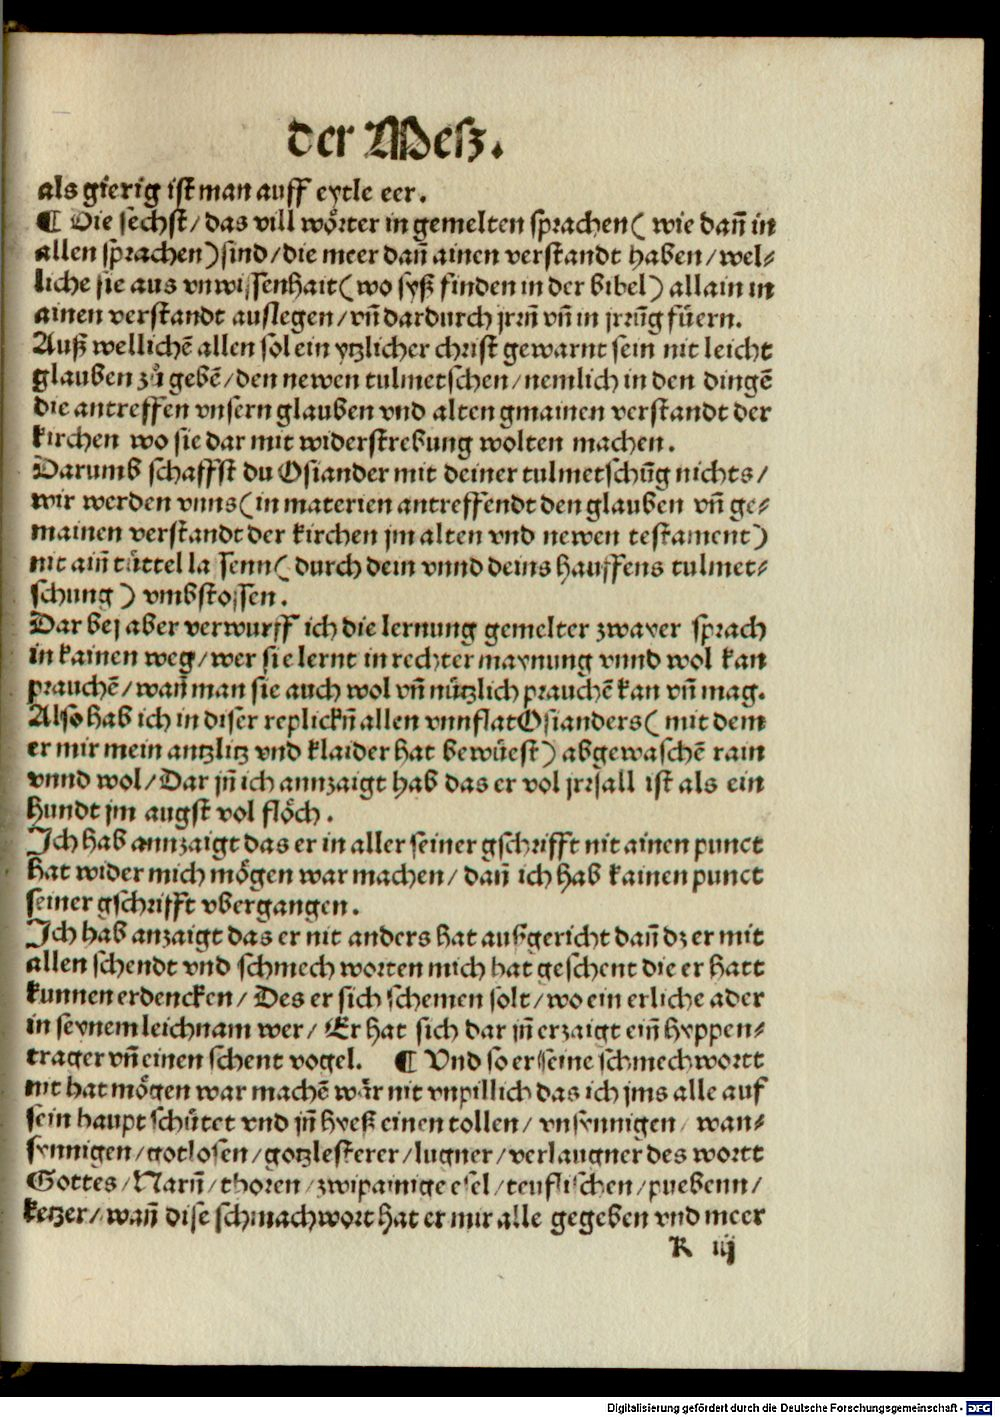 der Mesz.
als gierig ist man auff eytle eer.
¶ Die sechst/ das vill wörter in gemelten sprachen( wie dañ in
allen sprachen) sind/ die meer dañ ainen verstandt haben/ wel⸗
liche sie aus vnwissenhait( wo syß finden in der bibel) allain in
ainen verstandt auslegen/ vñ dardurch jrrñ vñ in jrrũg füern.
Auß wellichē allen sol ein ytzlicher christ gewarnt sein nit leicht
glauben zů gebē/ den newen tulmetschen/ nemlich in den dingē
die antreffen vnsern glauben vnd alten gmainen verstandt der
kirchen wo sie dar mit widerstrebung wolten machen.
Darumb schaffst du Osiander mit deiner tulmetschũg nichts/
wir werden vnns( in materien antreffendt den glauben vñ ge⸗
mainen verstandt der kirchen jm alten vnd newen testament)
nit aiñ tüttel la senn( durch dein vnnd deins hauffens tulmet⸗
schung) vmbstossen.
Dar bej aber verwurff ich die lernung gemelter zwayer sprach
in kainen weg/ wer sie lernt in rechter maynung vnnd wol kan
prauchē/ wañ man sie auch wol vñ nützlich prauchē kan vñ mag.
Also hab ich in diser replickñ allen vnnflat Osianders( mit dem
er mir mein antzlitz vnd klaider hat bewüest) abgewaschē rain
vnnd wol/ Dar jñ ich annzaigt hab das er vol jrrsall ist als ein
hundt jm augst vol flöch.
Ich hab annzaigt das er in aller seiner gschrifft nit ainen punct
hat wider mich mögen war machen/ dañ ich hab kainen punct
seiner gschrifft vbergangen.
Ich hab anzaigt das er nit anders hat außgericht dañ dz er mit
allen schendt vnd schmech worten mich hat geschent die er hatt
kunnen erdencken/ Des er sich schemen solt/ wo ein erliche ader
in seynem leichnam wer/ Er hat sich dar jñ erzaigt eiñ hyppen⸗
trager vñ einen schent vogel. ¶ Vnd so er seine schmechwortt
nit hat mögen war machē wär nit vnpillich das ich jms alle auf
sein haupt schütet vnd jñ hyeß einen tollen/ vnsynnigen/ wan⸗
synnigen/ gotlosen/ gotzlesterer/ lugner/ verlaugner des wortt
Gottes/ Narñ/ thoren/ zwipainige esel/ teuflischen/ puebenn/
ketzer/ wañ dise schmachwort hat er mir alle gegeben vnd meer
K iij
Digitalisierung gefördert durch die Deutsche Forschungsgemeinschaft - DFG